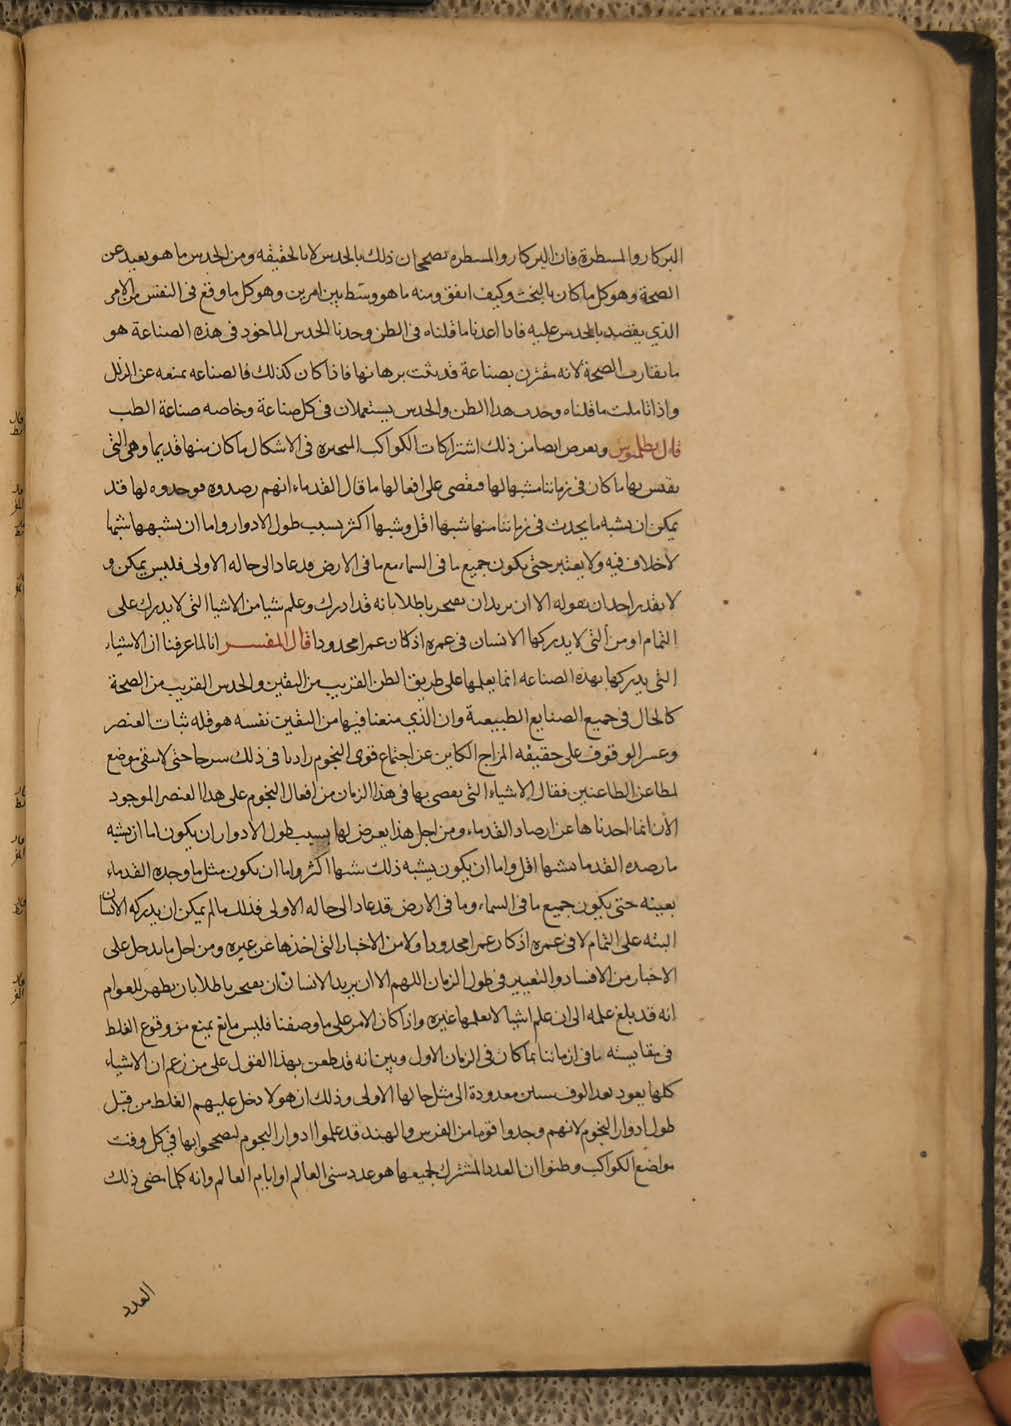 البركار والمسطرة فان البركار والمسطره تصححان ذلك بالحدس لا بالحقيقه ومن الحدس ما هو بعيد عن
الصحة وهو كل ما كان بالبخت وكيف اتفق ومنه ما هو وسط بين امرين وهو كل ما وقع فى النفس من الامر
الذي يقصد بالحدس عليه فاذا اعدنا ما قلناه فى الظن وجدنا الحدس الماخود فى هذه الصناعة هو
ما يقارب الصحة لانه مقترن بصناعة قد ثبت برهانها فاذا كان كذلك فالصناعه تمنعه عن الزلل
واذا تاملت ما قلناه وجدت هذا الظن والحدس يستعملان فى كل صناعة وخاصه صناعة الطب
قال بطلميوس ويعرض ايضا من ذلك اشتراكات الكواكب المتحيره فى الاشكال ما كان منها قديما وهى التى
نقيس بها ما كان فى زماننا مشبها لها فنقضى على افعالها ما قال القدماء انهم رصدوه فوجدوه لها قد
يمكن ان يشبه ما يحدث فى زماننا منها شبها اقل وشبها اكثر بسبب طول الادوار واما ان يشبهها شبها
لا خلاف فيه ولا يعتبر حتى يكون جميع ما فى السماء مع ما فى الارض قد عاد الى حاله الاولى فليس يمكن و
لا يقدر احد ان يقوله الا ان يريد ان يفتخر باطلا بانه قد ادرك وعلم شيا من الاشيا التى لا يدرك على
التمام او من التى لا يدركها الانسان فى عمره اذ كان عمرا محدودا قال المفسر انا لما عرفنا ان الاشياء
التى يدركها بهذه الصناعه انما يعلمها على طريق الظن القريب من اليقين والحدس القريب من الصحة
كالحال فى جميع الصنايع الطبيعية وان الذي منعنا فيها من اليقين نفسه هو قله ثبات العنصر
وعسر الوقوف على حقيقه المزاج الكاين عن اجتماع قوى النجوم زادنا فى ذلك شرحا حتى لا يبقى موضع
لمطاعن الطاعنين فقال الاشياء التى نقضى بها فى هذا الزمان من افعال النجوم على هذا العنصر الموجود
الان انما اخدناها عن ارصاد القدماء ومن اجل هذا يعرض لها بسبب طول الادوار ان يكون اما ان يشبه
ما رصده القدما شبها اقل واما ان يكون يشبه ذلك شبها اكثر واما ان يكون مثل ما وجده القدماء
بعينه حتى يكون جميع ما فى السماء وما فى الارض قد عاد الى حاله الاولى فذلك ما لم يمكن ان يدركه الانسان
البته على التمام لا فى عمره اذ كان عمرا محدودا ولا من الاخبار التى اخذها عن غيره ومن اجل ما يدخل على
الاخبار من الافساد والتغيير فى طول الزمان اللهم الا ان يريد الانسان ان يفتخر باطلا بان يظهر للعوام
انه قد بلغ علمه الى ان علم اشيا لا يعلمها غيره واذا كان الامر على ما وصفنا فليس مانع يمنع من وقوع الغلط
فى مقايسته ما فى ازماننا بما كان فى الزمان الاول وبين انه قد طعن بهذا القول على من زعم ان الاشياء
كلها يعود بعد الوف سنين معدودة الى مثل حالها الاولى وذلك ان هولا دخل عليهم الغلط من قبل
طول ادوار النجوم لانهم وجدوا قوما من الفرس والهند قد عملوا ادوار النجوم ليصححوا بها فى كل وقت
مواضع الكواكب وظنوا ان العدد المشترك لجميعها هو عدد سنى العالم او ايام العالم وانه كلما مضى ذلك
العدد